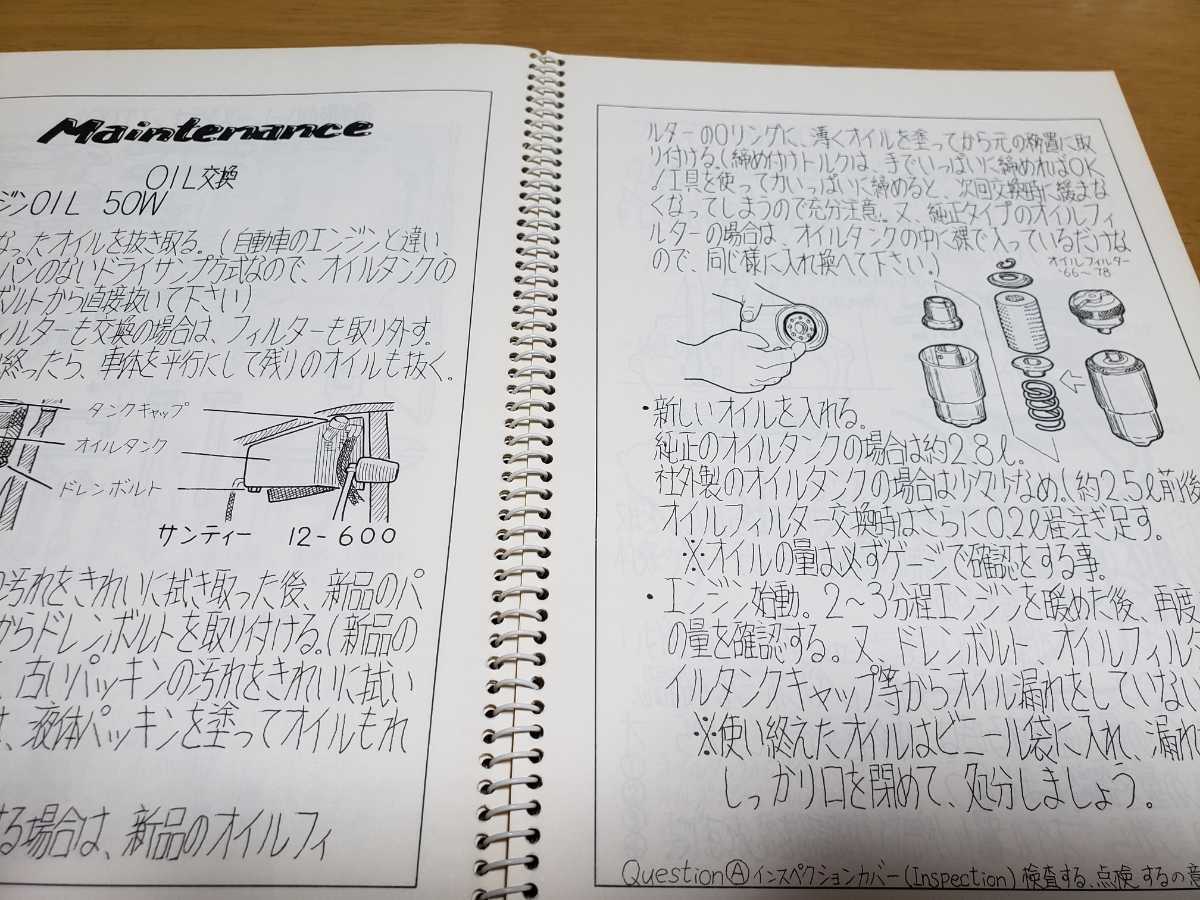 Maintenance
OIL交換
ジンOIL 50W
なったオイルを抜き取る。(自動車のエンジンと違い、
パンのないドライサンプ方式なので、オイルタンクの
ボルトから直接抜いて下さい)
ィルターも交換の場合は、フィルターも取り外す。
終ったら、車体を平行にして残りのオイルも抜く。
タンクキャップ
オイルタンク
ドレンボルト
サンティー 12-600
汚れをきれいに拭き取った後、新品のパ
からドレンボルトを取り付ける。(新品の
、古いパッキンの汚れをきれいに拭い
は、液体パッキンを塗ってオイルもれ
する場合は、新品のオイルフィ
ルターのOリングに、薄くオイルを塗ってから元の位置に取
り付ける。(締め付けトルクは、手でいっぱいに締めればOK
!工具を使って力いっぱいに締めると、次回交換時に緩まな
くなってしまうので充分注意。又、純正タイプのオイルフィ
ルターの場合は、オイルタンクの中に裸で入っているだけな
ので、同じ様に入れ換へて下さい。)
オイルフィルター
'66〜'78
・新しいオイルを入れる。
純正のオイルタンクの場合は約2.8ℓ。
社外製のオイルタンクの場合は少々少なめ。(約2.5ℓ前後
オイルフィルター交換時はさらに0.2ℓ程注ぎ足す。
※オイルの量は必ずゲージで確認をする事。
・エンジン始動。2〜3分程エンジンを暖めた後、再度
の量を確認する。又、ドレンボルト、オイルフィルタ
イルタンクキャップ等からオイル漏れをしていない
※使い終えたオイルはビニール袋に入れ、漏れ
しっかり口を閉めて、処分しましょう。
QuestionⒶインスペクションカバー(Inspection)検査する、点検するの意